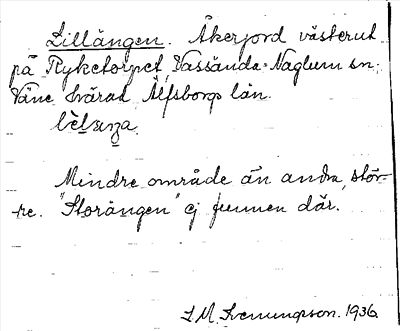 Lillängen. Åkerjord västerut
på Ryketorpet, Vassända-Naglum sn.
Väne härad Älfsborgs län.

Mindre område än andra, stör-
re. "Storängen" ej funnen där.
1936